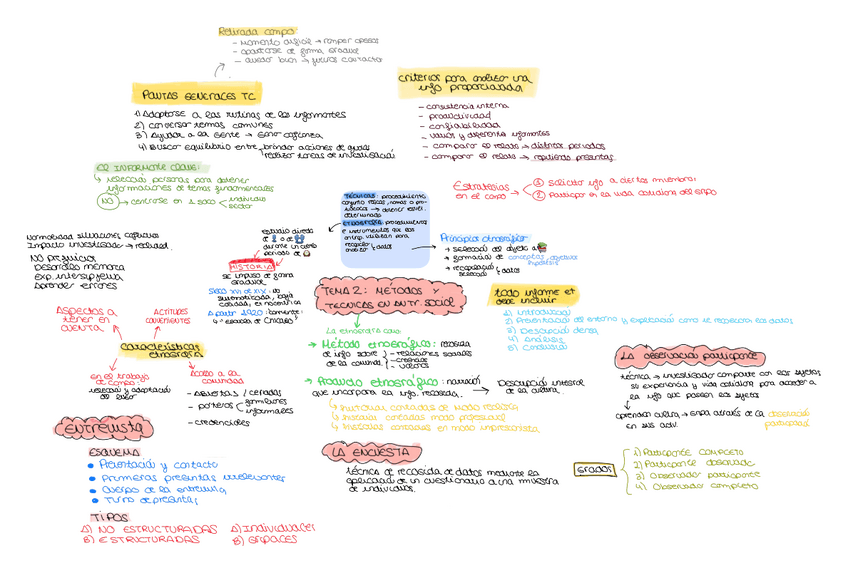 Retirada campo
- Momento difícil → romper apegos
- apartarse de forma gradual
- quedar bien → futuros contactos
PAUTAS GENERALES TC
1) Adaptarse a las rutinas de los informantes
2) conversar temas comunes
3) Ayudar a la gente → ganar confianza
4) Buscar equilibrio entre brindar acciones de ayuda
realizar tareas de investigación
criterios para analizar una
info proporcionada
- consistencia interna
- productividad
- confiabilidad
- varios y diferentes informantes
- comparar el relato → distintos periodos
- comparar el relato → repitiendo preguntas
EL INFORMANTE CLAVE:
↳ selección personas para obtener
informaciones de temas fundamentales
NO → centrarse en 1 solo individuo
sector
Estrategias
en el campo
1 solicitar info a ciertos miembros
2 Participar en la vida cotidiana del grupo
TÉCNICAS: procedimiento,
conjunto reglas, normas o pro-
tocolos → obtener result.
determinado
ETNOGRAFÍA: procedimientos
e instrumentos que los
antrop. utilizan para
recopilar
analizar datos
estudio directo
de o de
durante un cierto
periodo de
HISTORIA
se impuso de forma
gradual
SIGLO XVI al XIX: no
sistematizada,
A partir 1920: comienza
↳ "escuela de Chicago"
Principios etnográficos
→ selección del objeto de
→ formación de conceptos, objetivos
hipótesis
→ recopilación
selección datos
Normalidad situaciones cotidianas
Impacto investigador → realidad.
NO prejuicios
Desarrollo memoria
Exp. interrumpida
Aprender errores
Aspectos a
tener en
CUENTA
Actitudes
convenientes
Características
etnografía
en el trabajo
de campo:
selección y adaptación
del lugar
Acceso a la
comunidad
- ABIERTAS / cerradas
- porteros formales
informales
- credenciales
TEMA 2: MÉTODOS Y
TECNICAS EN ANTR. SOCIAL
La etnografía como
→ Método etnográfico: recogida
de info sobre - relaciones sociales
de la comunid. - creencias
- valores
→ Producto etnográfico: narración
que incorpora la info. recogida.
→ Descripción integral
de la cultura.
↳ historias contadas de modo realista
↳ historias contadas modo profesional
↳ historias contadas en modo impresionista
todo informe et.
debe incluir
1) introducción
2) Presentación del entorno y explicación como se recogieron los datos
3) Descripción densa
4) Análisis
5) Conclusión
LA observación participante
técnica → investigador comparte con los sujetos
su experiencia y vida cotidiana para acceder a
la info que poseen los sujetos
aprender cultura → grupo através de la observación
en sus activ. participada
GRADOS
1) Participante COMPLETO
2) Participante observador
3) Observador participante
4) Observador completo
ENTREVISTA
ESQUEMA
• Presentación y contacto
• Primeras preguntas irrelevantes
• Cuerpo de la entrevista
• Turno de preguntas
TIPOS
A) NO ESTRUCTURADAS A) Individuales
B) ESTRUCTURADAS B) Grupales
LA ENCUESTA
técnica de recogida de datos mediante la
aplicación de un cuestionario a una muestra
de individuos.